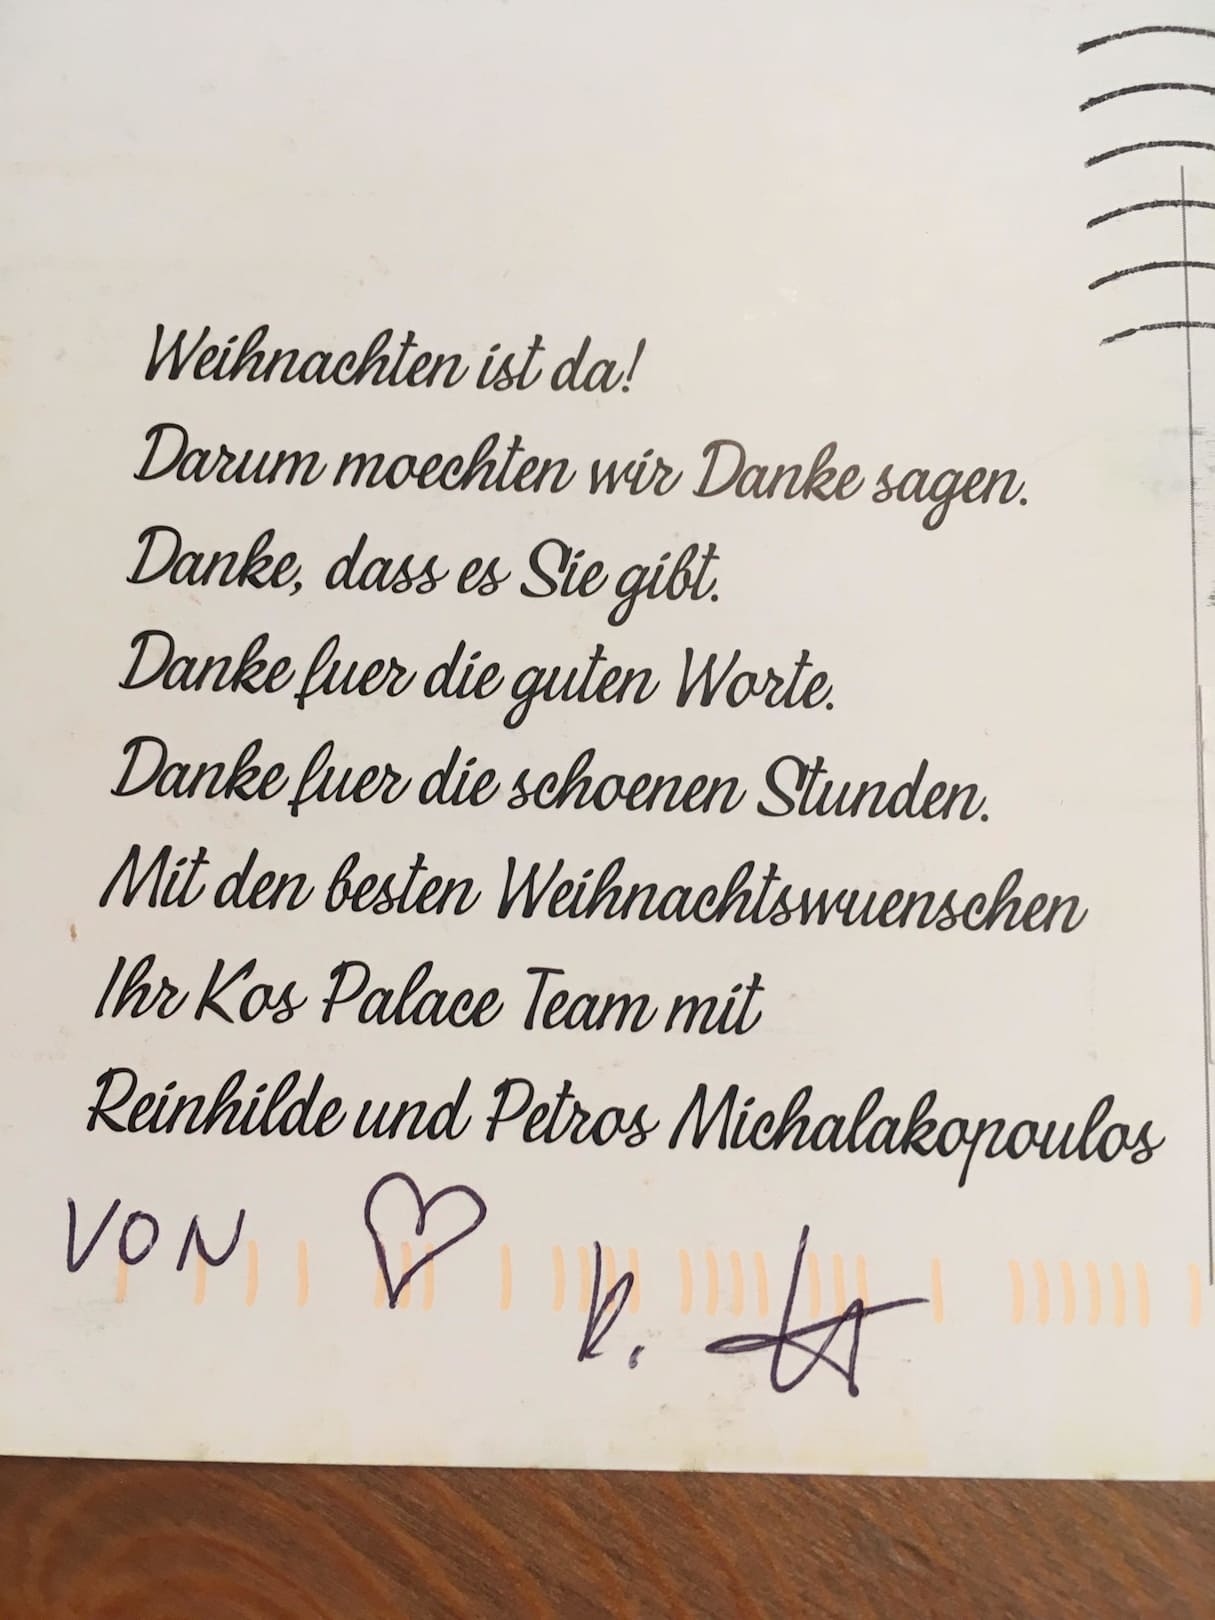 Weihnachten ist da!
Darum moechten wir Danke sagen.
Danke, dass es Sie gibt.
Danke fuer die guten Worte.
Danke fuer die schoenen Stunden.
Mit den besten Weihnachtswuenschen
Ihr Kos Palace Team mit
Reinhilde und Petros Michalakopoulos
VON